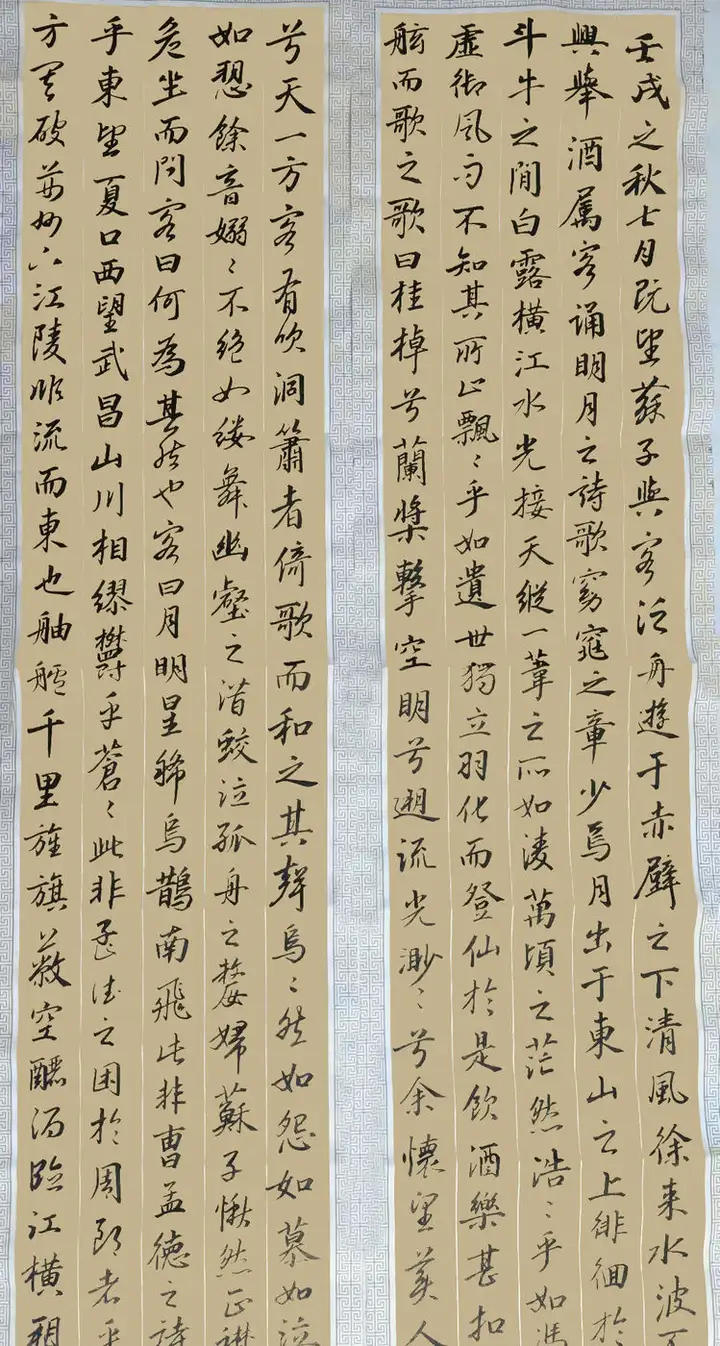 壬戌之秋七月既望蘇子與客泛舟遊于赤壁之下清風徐来水波不
興舉酒属客誦明月之詩歌窈窕之章少焉月出于東山之上徘徊於
斗牛之間白露橫江水光接天縱一葦之所如淩萬頃之茫然浩〻乎如馮
虛御風而不知其所止飄〻乎如遺世獨立羽化而登仙於是飲酒樂甚扣
舷而歌之歌曰桂棹兮蘭槳擊空明兮遡流光渺〻兮余懷望美人
兮天一方客有吹洞簫者倚歌而和之其聲烏〻然如怨如慕如泣
如愬餘音嫋〻不絕如縷舞幽壑之潛蛟泣孤舟之嫠婦蘇子愀然正襟
危坐而問客曰何為其然也客曰月明星稀烏鵲南飛此非曹孟德之詩
乎東望夏口西望武昌山川相繆鬱乎蒼〻此非孟德之困於周郎者乎
方其破荊州下江陵順流而東也舳艫千里旌旗蔽空釃酒臨江橫槊